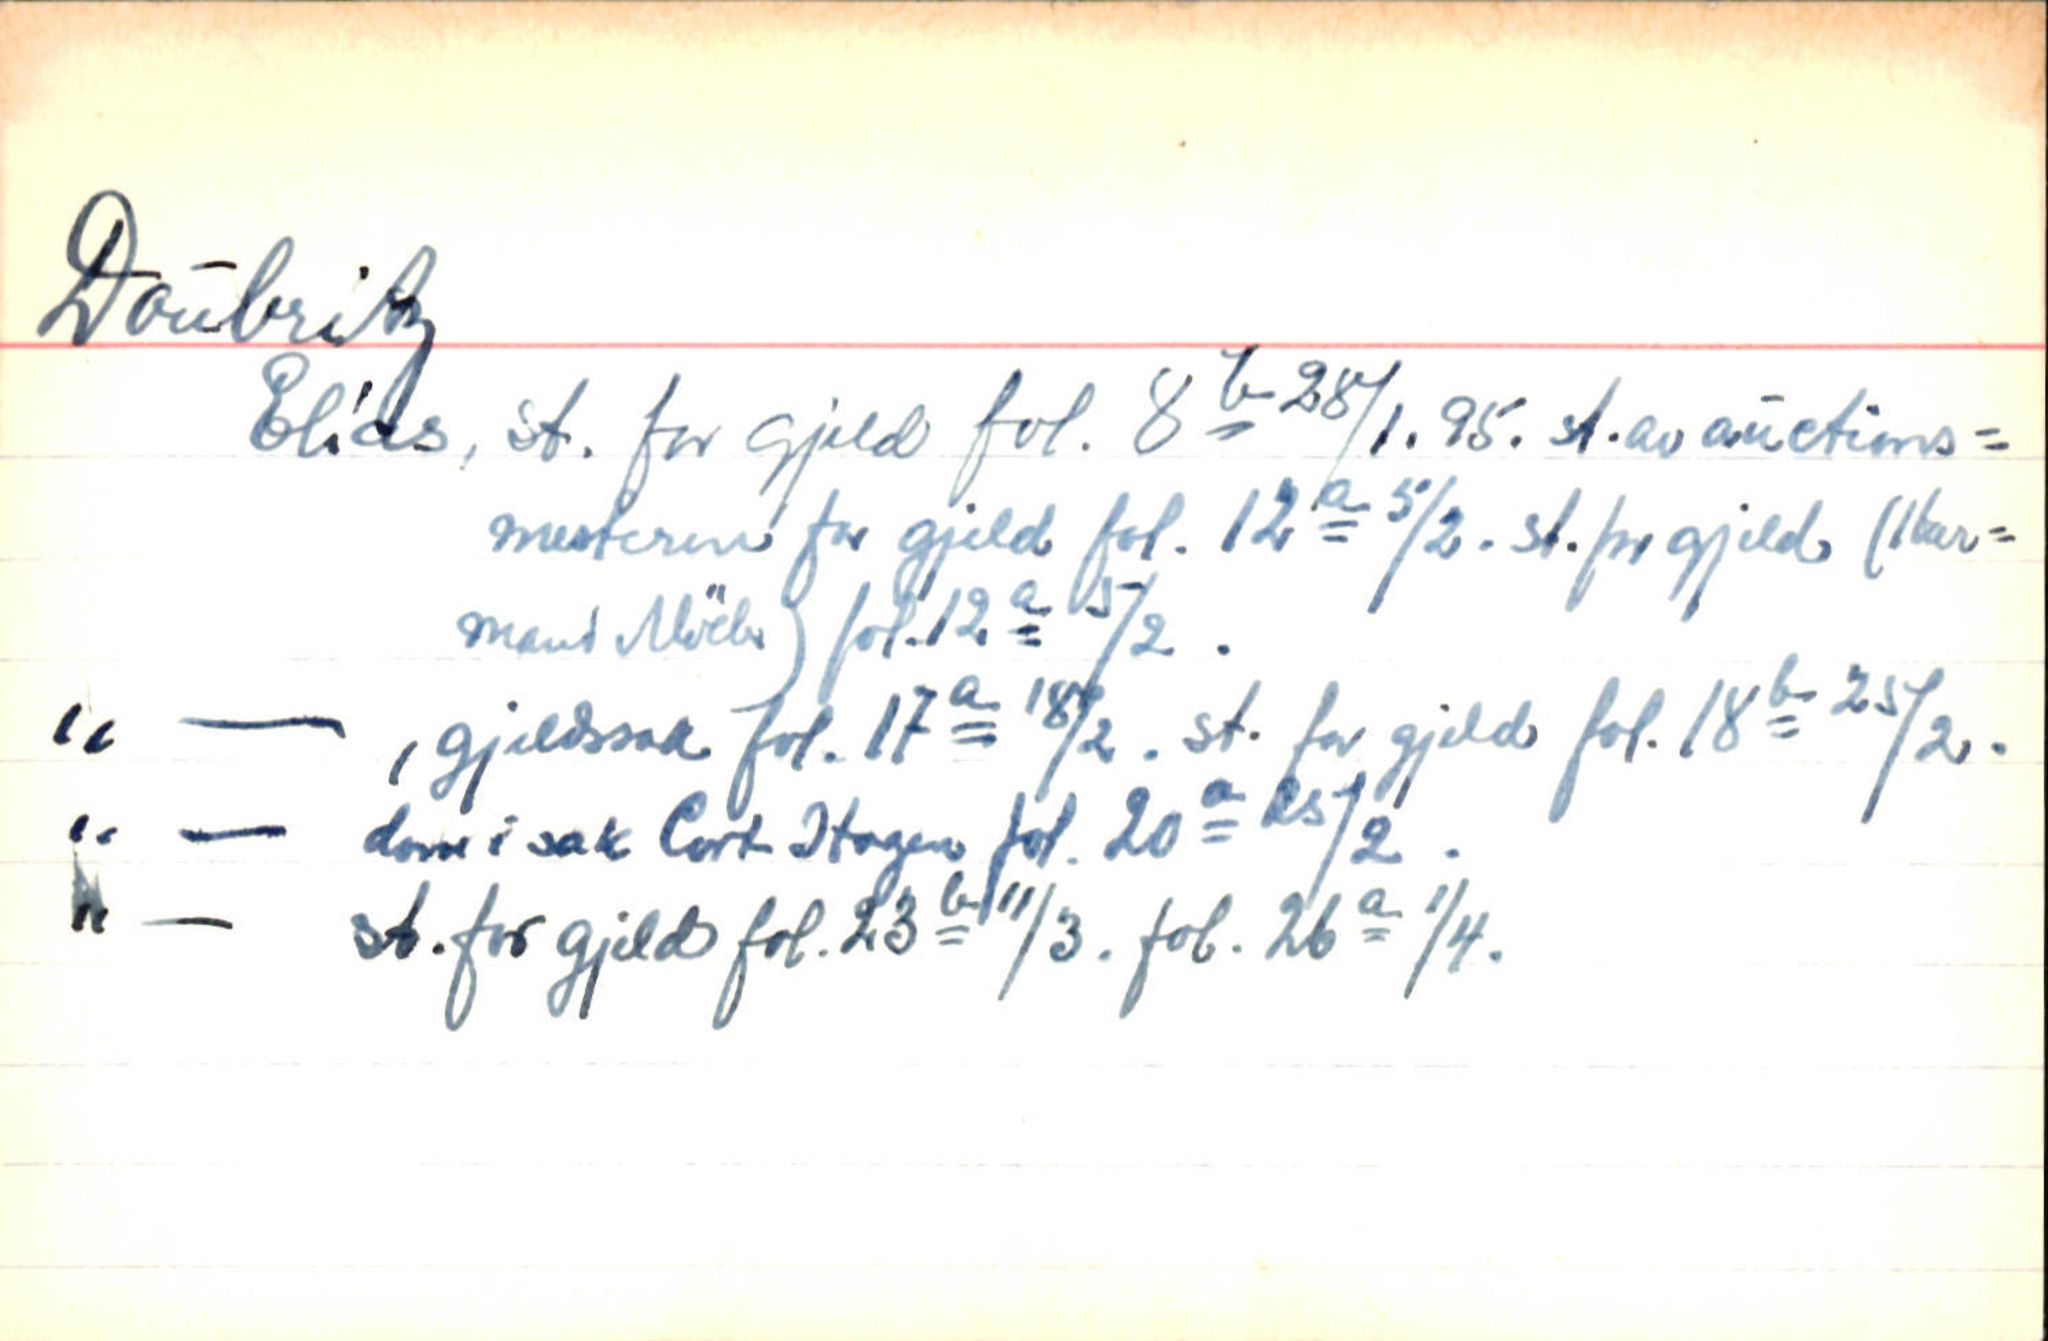 Daubritz
Elias, st. for gjeld fol. 8 b 28/1.95. st. av auctions=
mesteren for gjeld fol. 12 a 5/2. st. for gjeld
fol. 12 a 5/2.
" — , gjeldssak fol. 17 a 18/2. st. for gjeld fol. 18 b 25/2.
" — dom i sak Cort Hagen fol. 20 a 25/2.
" — st. for gjeld fol. 23 b 11/3. fol. 26 a 1/4.